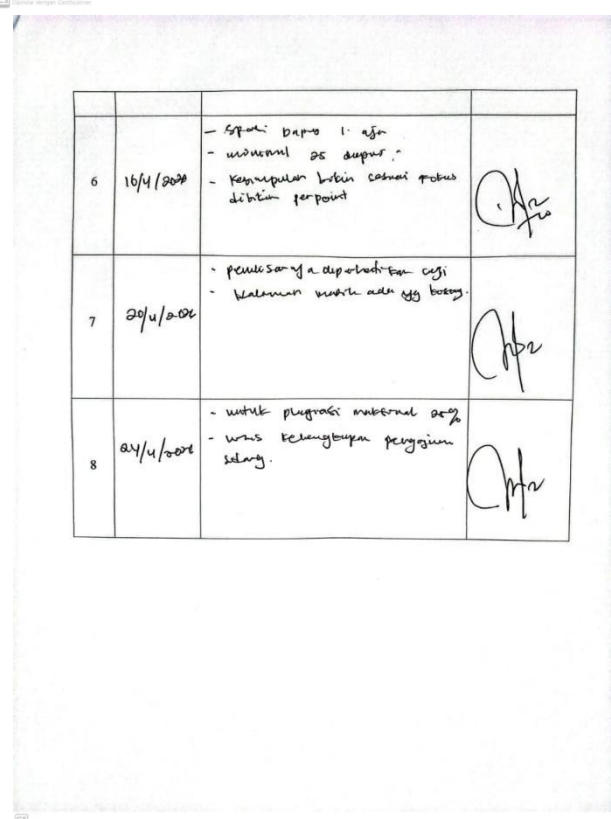 Dipindai dengan CamScanner
- spasi dapus 1. aja
- minimal 25 dapus.
6
16/4/
- Kesimpulan bikin sesuai fokus
dibikin perpoint
- penulisannya diperhatikan lagi
- Halaman masih ada yg kosong.
7
20/4/
- untuk plagiasi maksimal 25%
- kelengkapan pengajuan
8
24/4/
sidang.